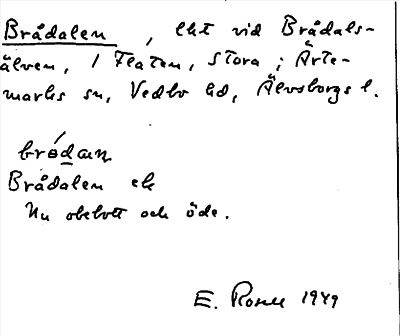 Brådalen, lht vid Brådals-
älven, / Flaten, Stora; Ärte-
marks sn, Vedbo hd, Älvsborgs l.
brådan
Brådalen ek
Nu obebott och öde.
E. Rosell 1949